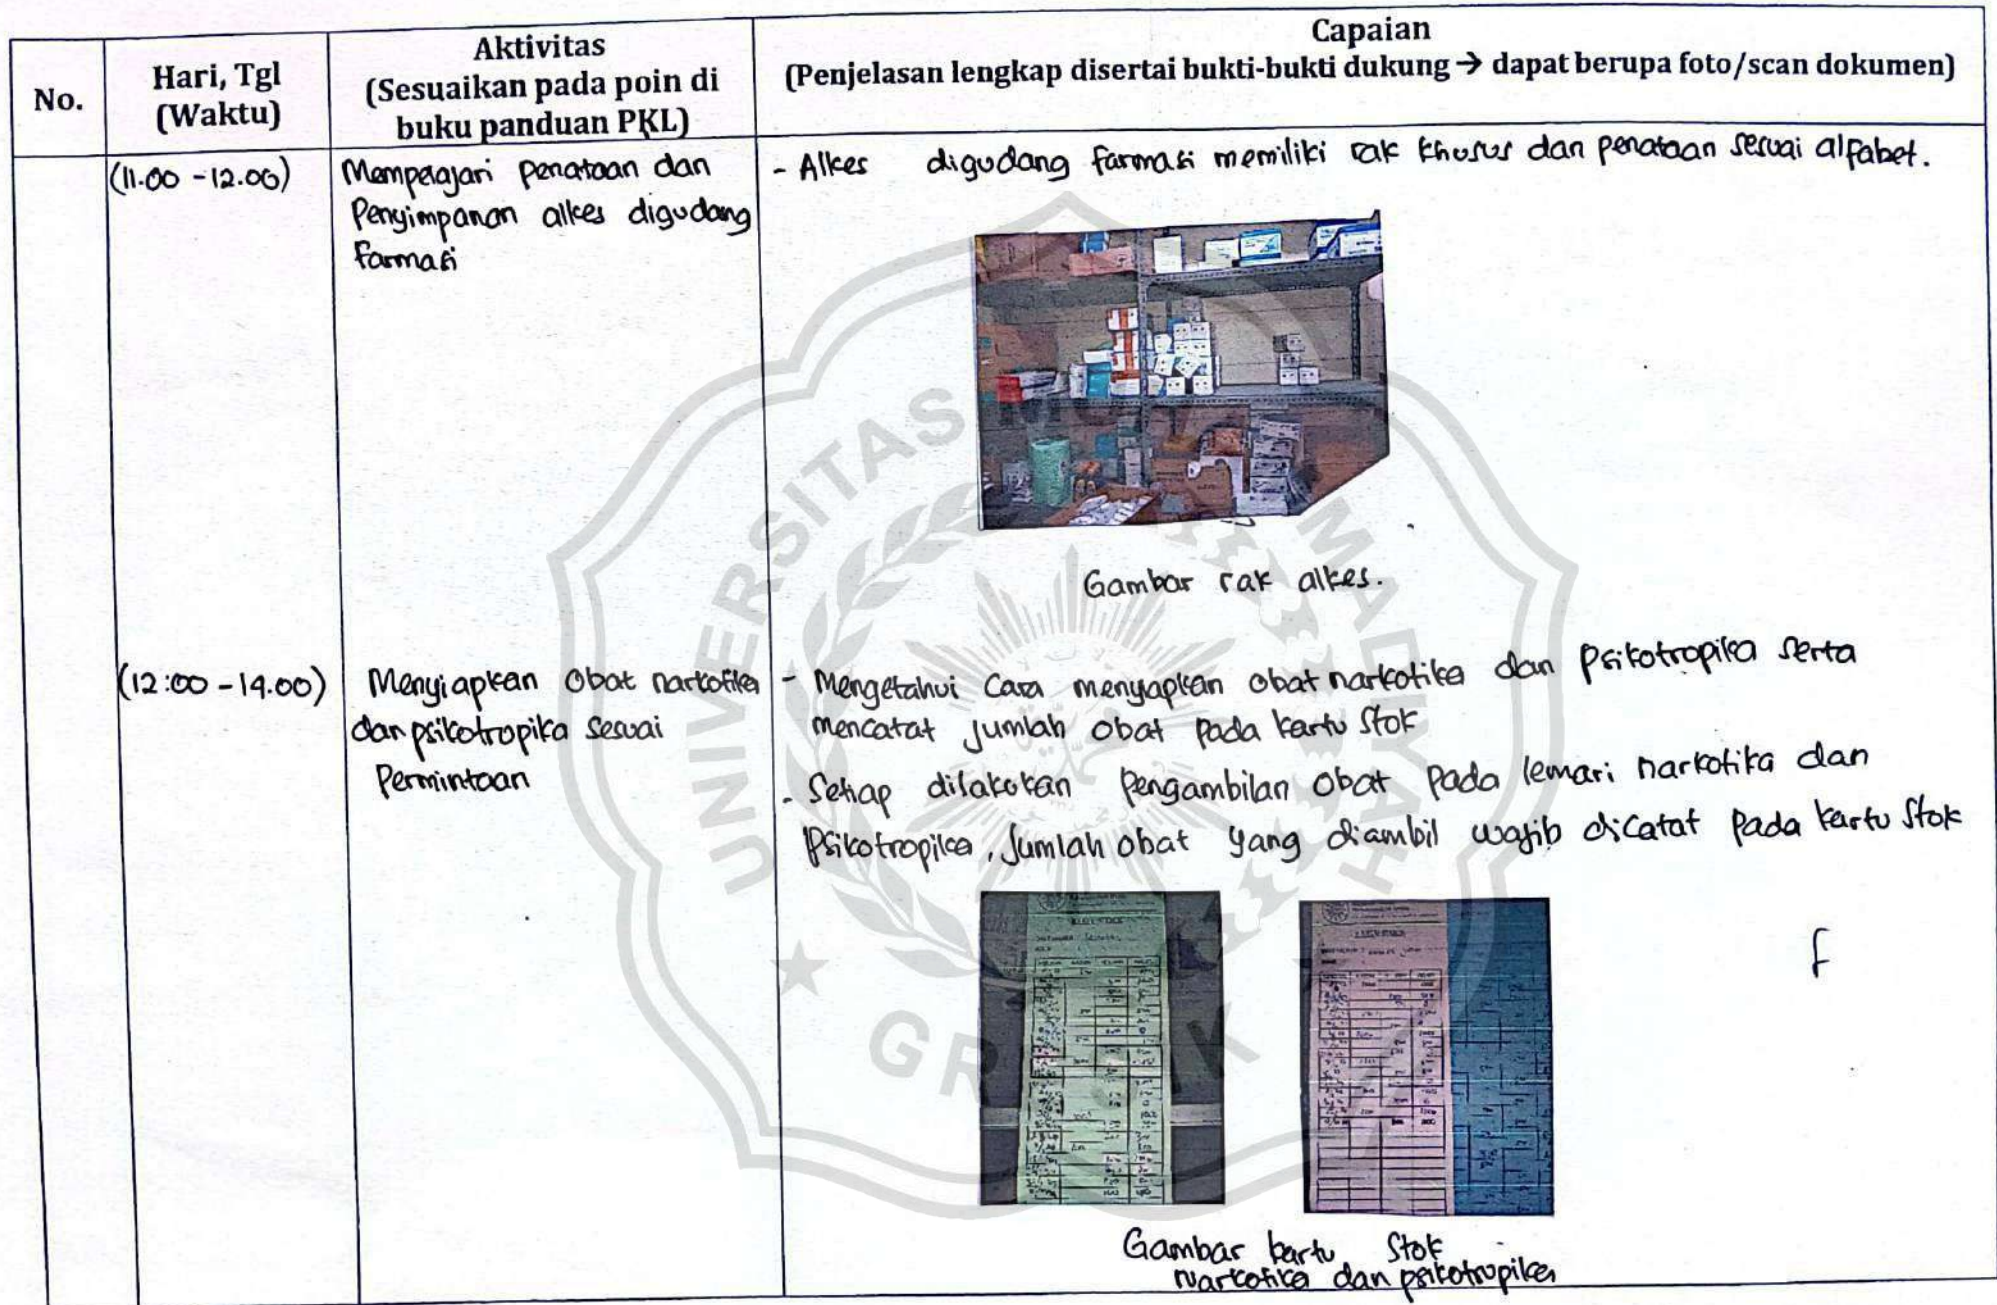 No.
Hari, Tgl
(Waktu)
Aktivitas
(Sesuaikan pada poin di
buku panduan PKL)
Capaian
(Penjelasan lengkap disertai bukti-bukti dukung → dapat berupa foto/scan dokumen)
(11.00 - 12.00)
Mempelajari penataan dan
Penyimpanan alkes digudang
farmasi
- Alkes digudang farmasi memiliki rak khusus dan penataan sesuai alfabet.
Gambar rak alkes.
(12:00 - 14.00)
Menyiapkan Obat narkotika
dan psikotropika sesuai
Permintaan
- Mengetahui Cara menyiapkan obat narkotika dan Psikotropika serta
mencatat jumlah obat pada kartu stok
- Setiap dilakukan pengambilan obat pada lemari narkotika dan
Psikotropika, Jumlah obat yang diambil wajib dicatat pada kartu stok
Gambar kartu stok
narkotika dan psikotropika
UNIVERSITAS MUHAMMADIYAH
GRESIK